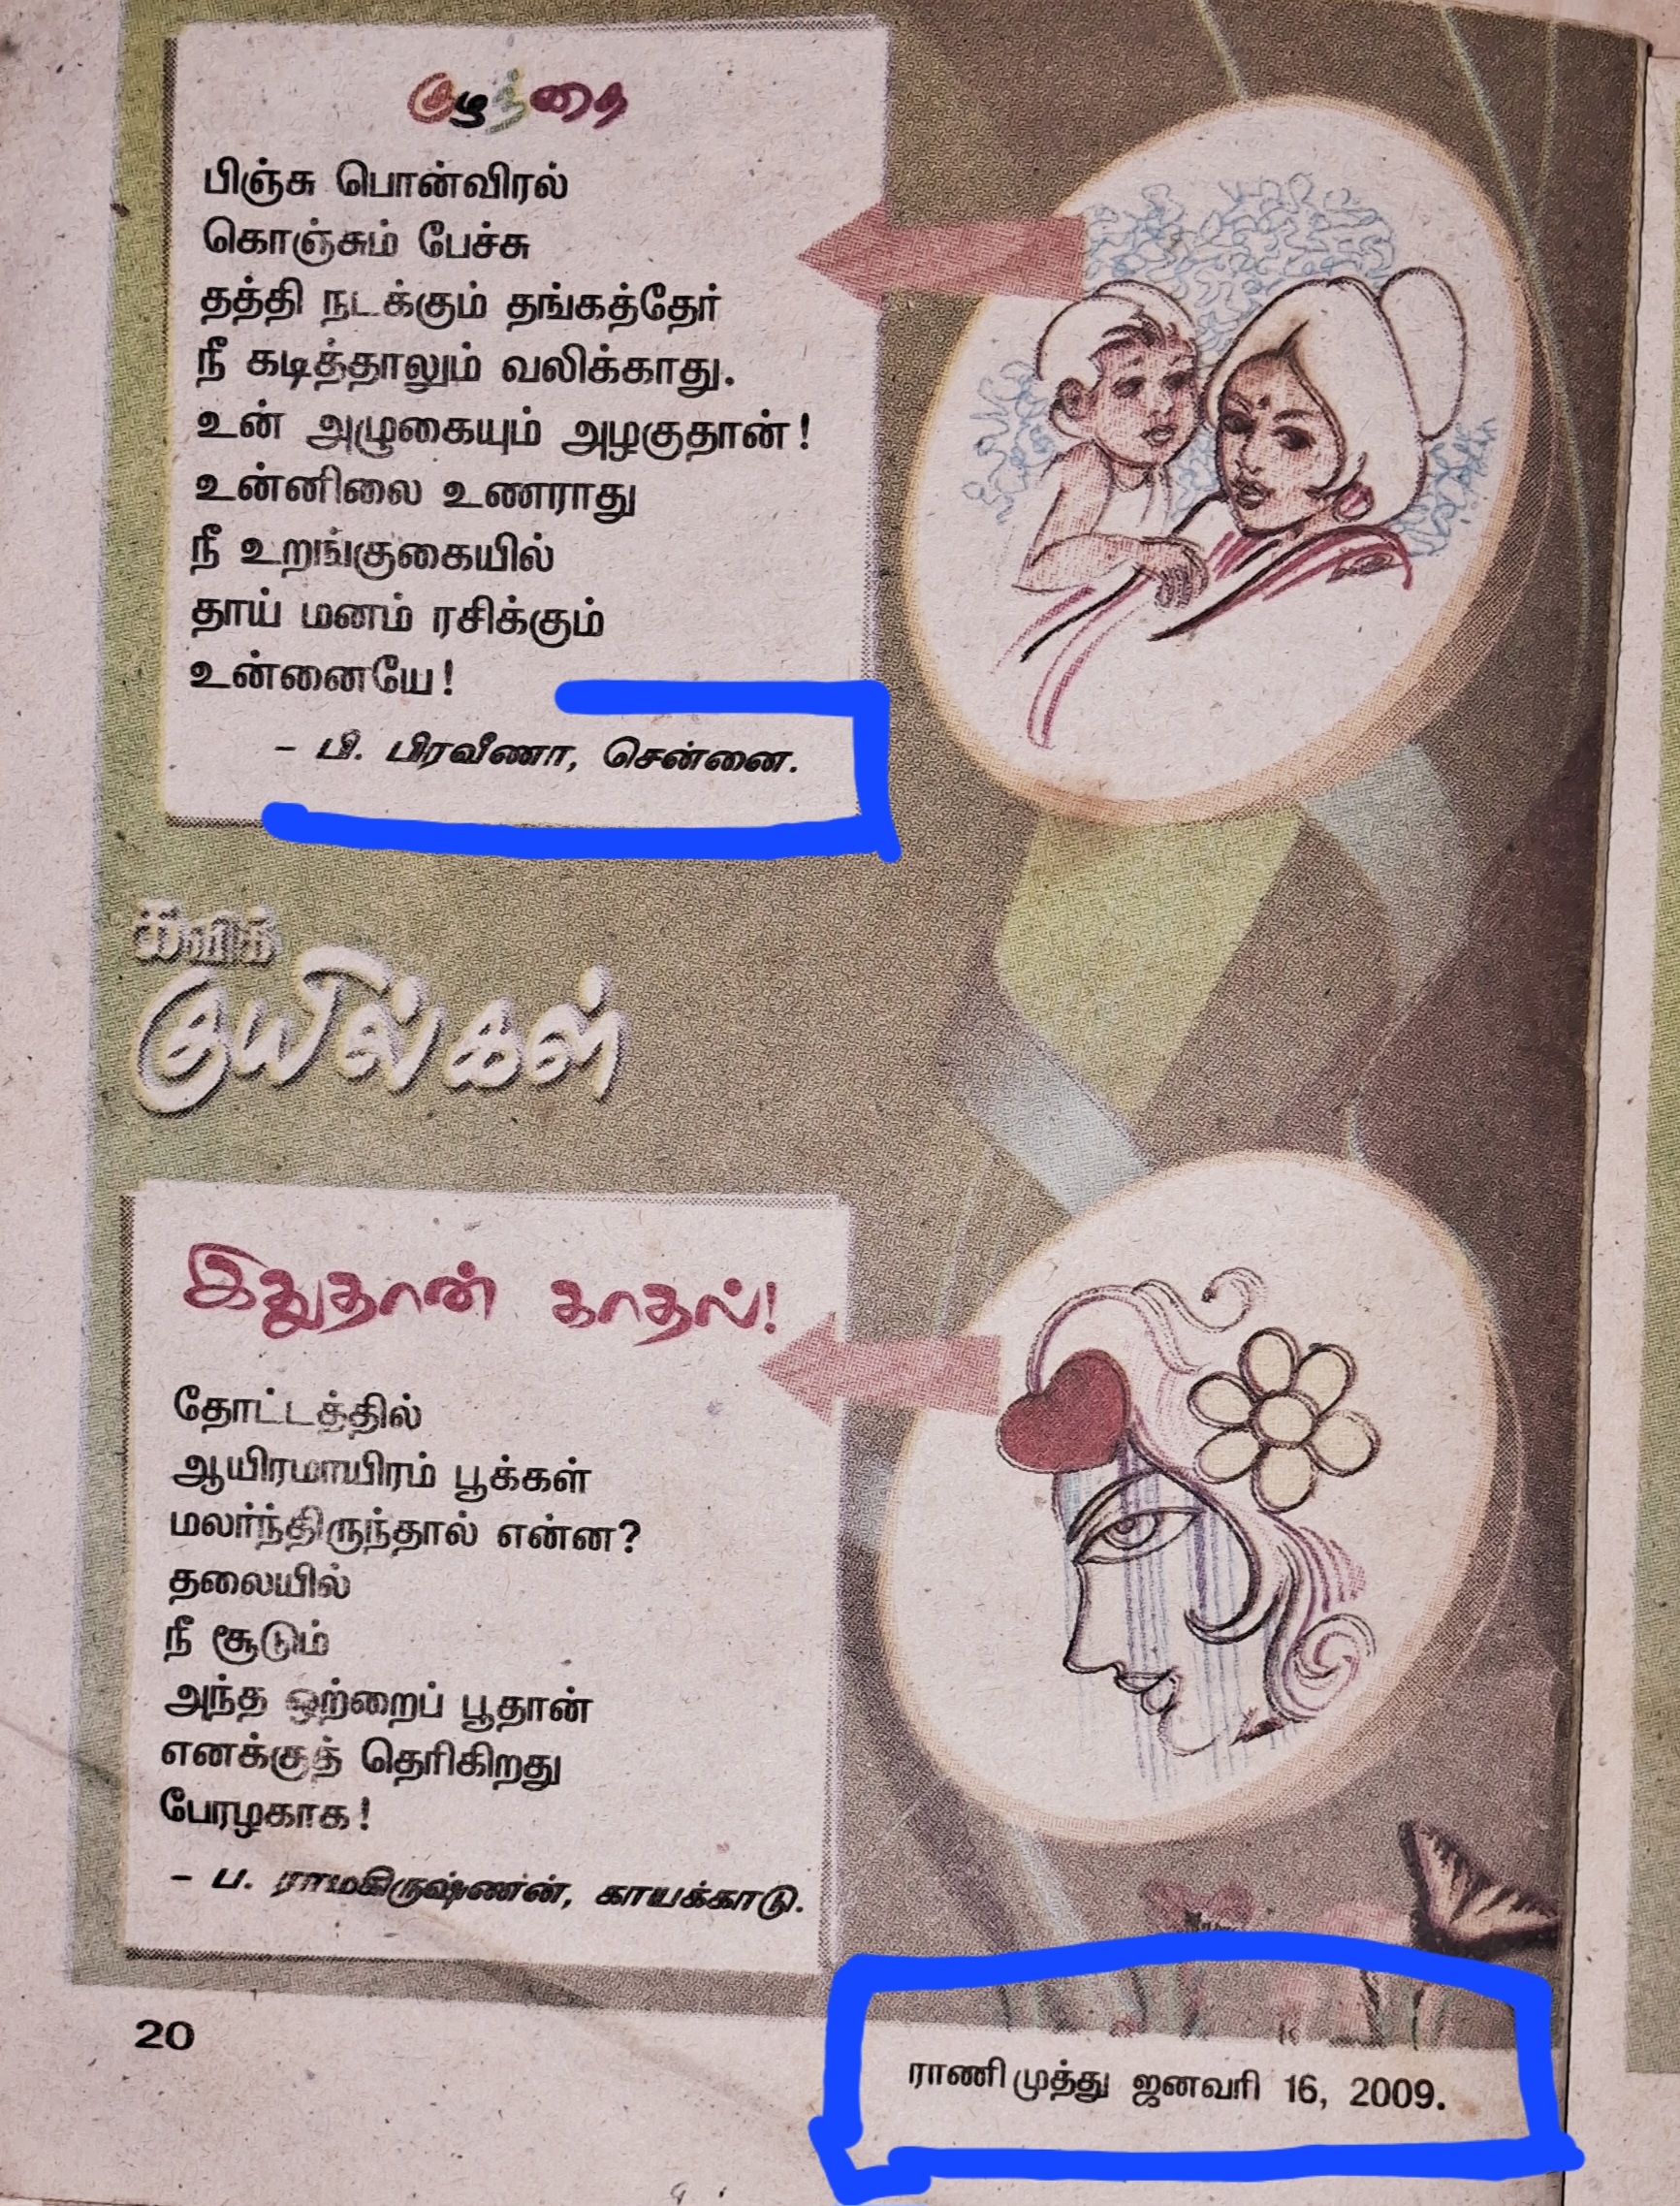 குழந்தை
பிஞ்சு பொன்விரல்
கொஞ்சும் பேச்சு
தத்தி நடக்கும் தங்கத்தேர்
நீ கடித்தாலும் வலிக்காது.
உன் அழுகையும் அழகுதான்!
உன்னிலை உணராது
நீ உறங்குகையில்
தாய் மனம் ரசிக்கும்
உன்னையே!
– பி. பிரவீணா, சென்னை.
கவிக்
குயில்கள்
இதுதான் காதல்!
தோட்டத்தில்
ஆயிரமாயிரம் பூக்கள்
மலர்ந்திருந்தால் என்ன?
தலையில்
நீ சூடும்
அந்த ஒற்றைப் பூதான்
எனக்குத் தெரிகிறது
பேரழகாக!
– ப. ராமகிருஷ்ணன், காயக்காடு.
20
ராணிமுத்து ஜனவரி 16, 2009.